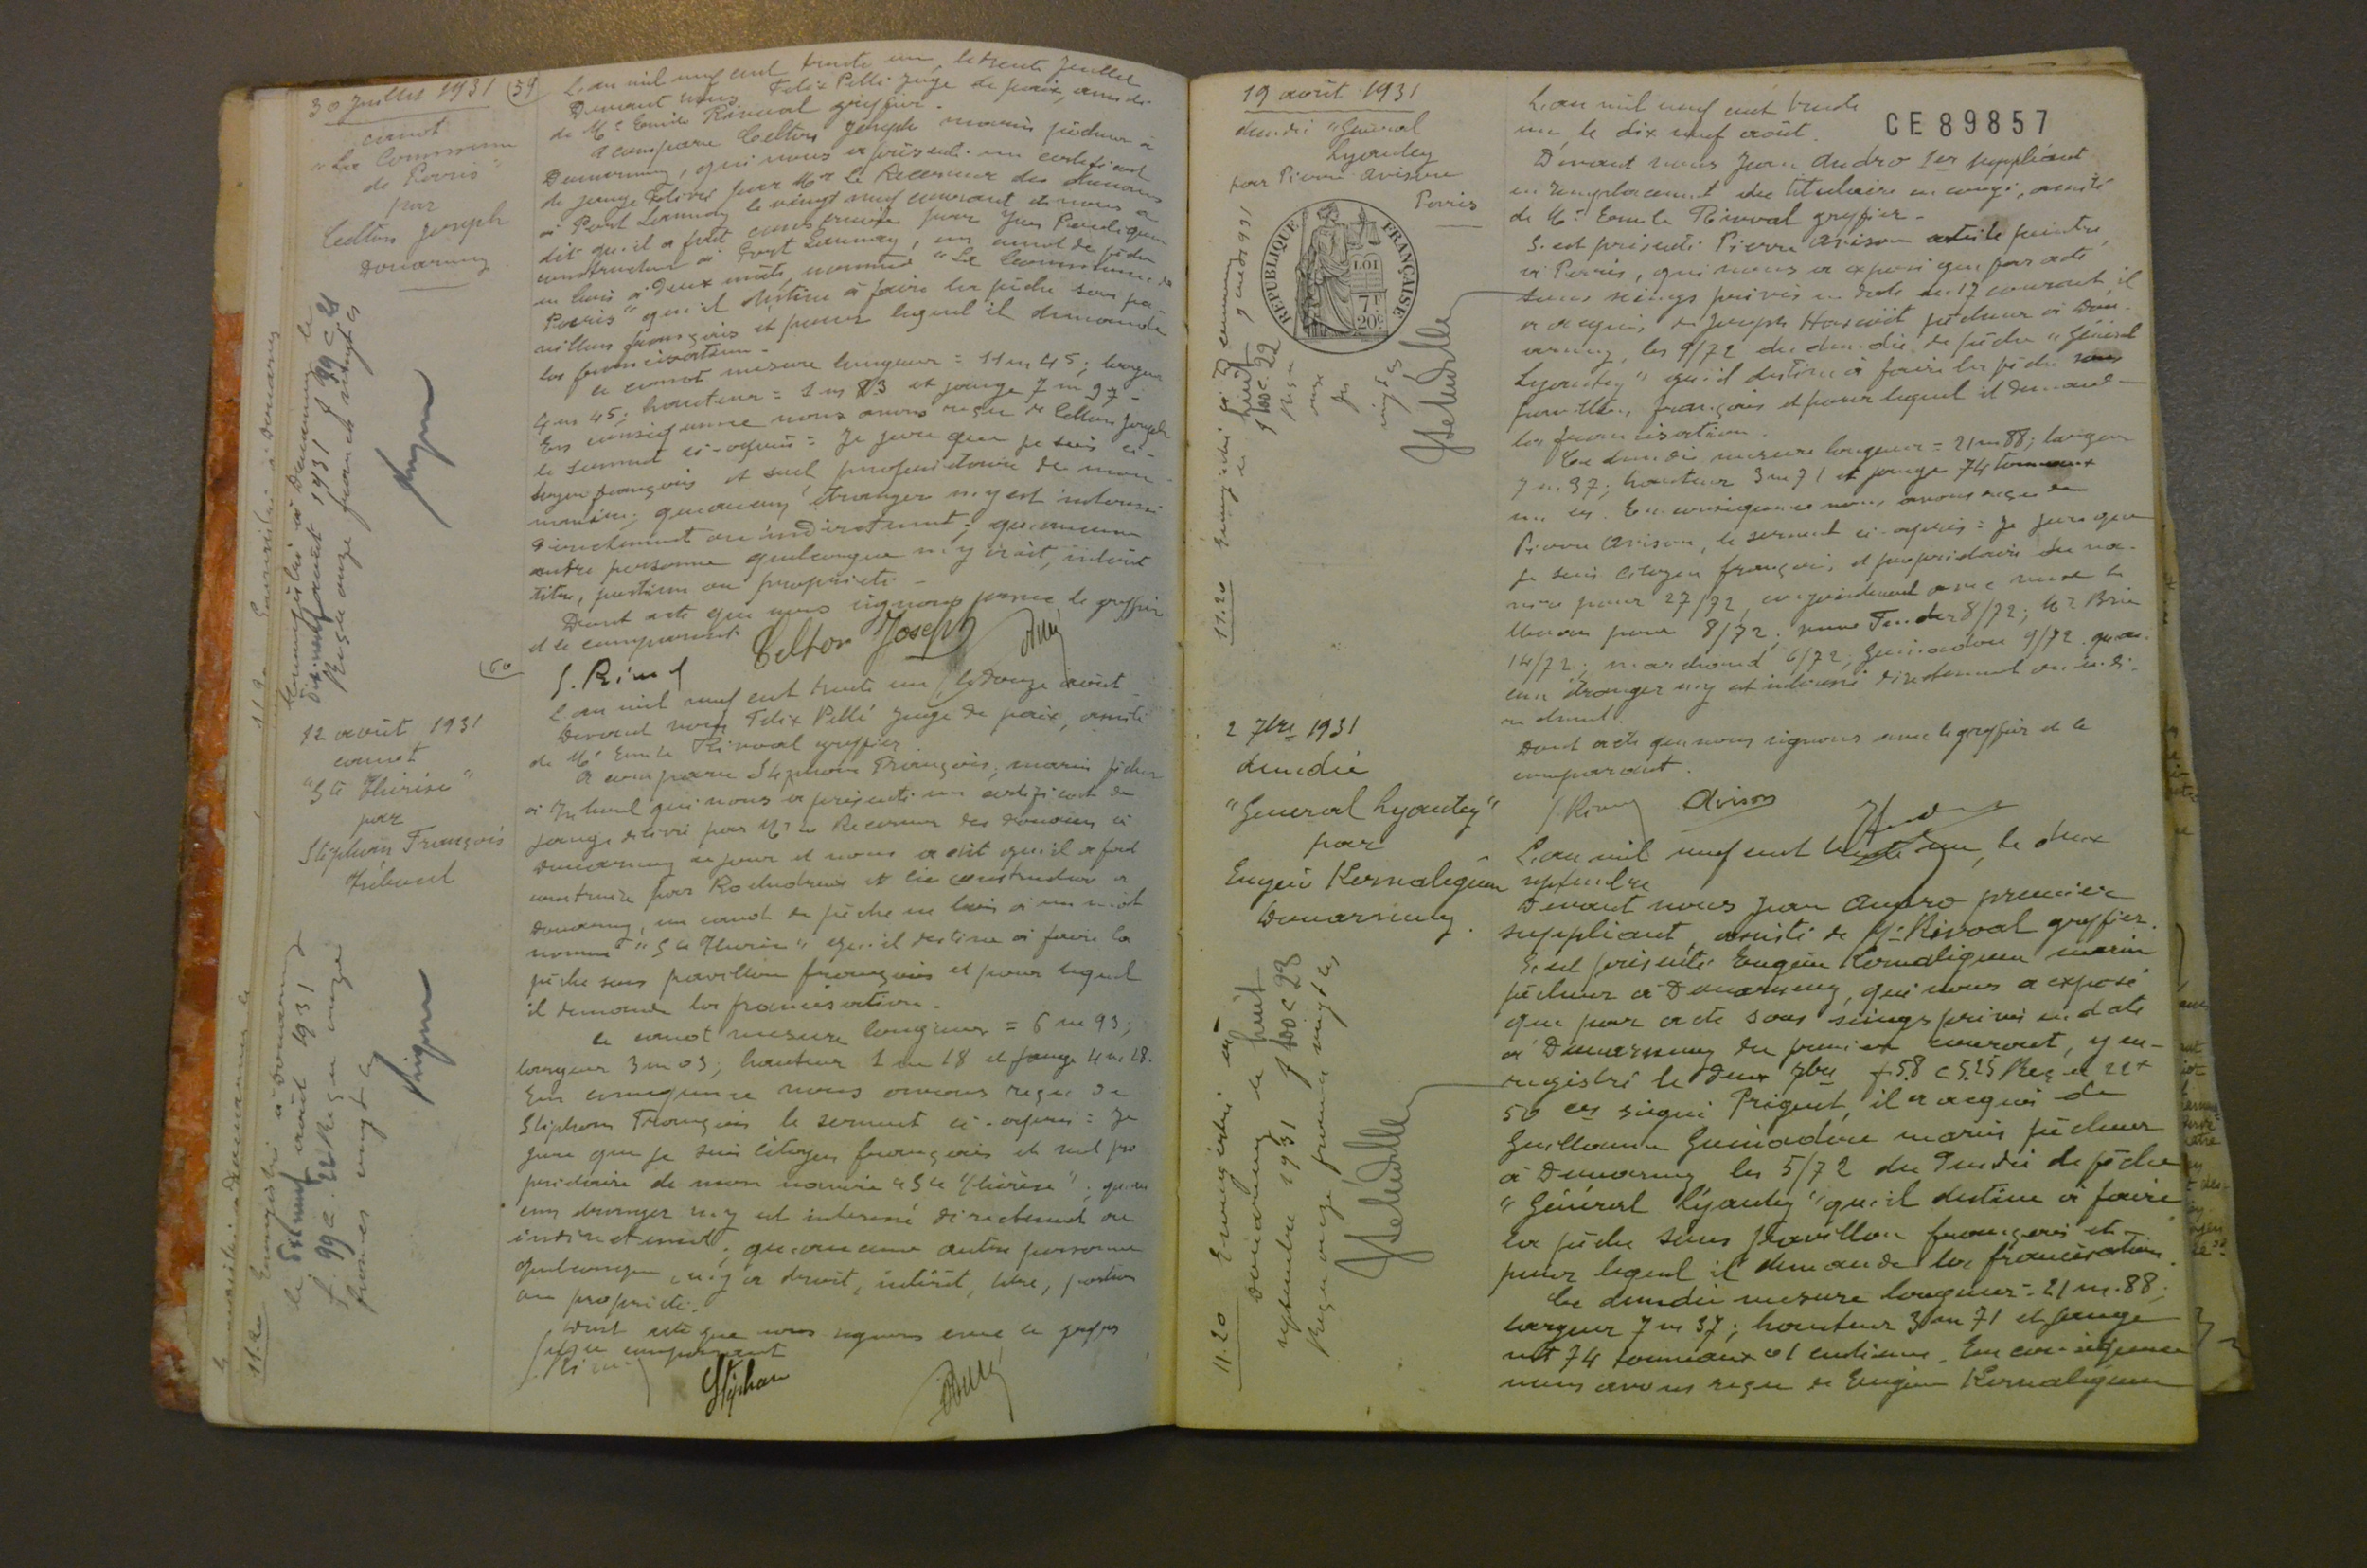 30 Juillet 1931 (59
canot
"La Commune
de Paris"
par
Celton Joseph
Douarnenez
L'an mil neuf cent trente un, le trente Juillet
Devant nous Félix Pellé Juge de paix, assisté
de Me Emile Rivoal greffier.
A comparu Celton Joseph marin pêcheur à
Douarnenez, qui nous a présenté un certificat
de jauge délivré par Mr le Receveur des douanes
à Port Launay le vingt neuf courant et nous a
dit qu'il a fait construire par Yves
constructeur à Port Launay, un canot de pêche
en bois à deux mâts, nommé "La Commune de
Paris" qu'il destine à faire la pêche sous pa-
villon français et pour lequel il demande
la francisation.
Le canot mesure longueur = 11 m 45; largeur
4 m 45; hauteur = 1 m 83 et jauge 7 m 97 -
En conséquence nous avons reçu de Celton Joseph
le serment ci-après = Je jure que je suis ci-
toyen français et seul propriétaire de mon
navire; qu'aucun étranger n'y est intéressé
directement ou indirectement; qu'aucune
autre personne quelconque n'y a droit, intérêt
titre, portion ou propriété -
Dont acte que nous signons avec le greffier
et le comparant.
Celton Joseph
Enregistré à Douarnenez le
dix neuf août 1931 f 99 c 21
Reçu onze francs vingt cs
(60
12 août 1931
canot
"Ste Thérèse"
par
Stéphan François
Tréboul
L'an mil neuf cent trente un, le douze août -
Devant nous Félix Pellé Juge de paix, assisté
de Me Emile Rivoal greffier
A comparu Stéphan François, marin pêcheur
à Tréboul qui nous a présenté un certificat de
jauge délivré par Mr le Receveur des douanes à
Douarnenez ce jour et nous a dit qu'il a fait
construire par et Cie constructeur à
Douarnenez, un canot de pêche en bois à un mât
nommé "Ste Thérèse" qu'il destine à faire la
pêche sous pavillon français et pour lequel
il demande la francisation.
Le canot mesure longueur = 6 m 93;
largeur 3 m 03; hauteur 1 m 18 et jauge 4 m 28.
En conséquence nous avons reçu de
Stéphan François le serment ci-après = Je
jure que je suis citoyen français et seul pro
priétaire de mon navire "Ste Thérèse"; qu'au
cun étranger n'y est intéressé directement ou
indirectement; qu'aucune autre personne
quelconque n'y a droit, intérêt, titre, portion
ou propriété.
Dont acte que nous signons avec le greffier
et le comparant
Stéphan
11.20 Enregistré à Douarnenez
le dix neuf août 1931
f. 99 c. 22 Reçu onze
francs vingt cs
19 août 1931
dundée "Général
Lyautey
par Pierre Avison
Paris
REPUBLIQUE FRANÇAISE
LOI
7F
20c
11.20 Enregistré à Douarnenez
f 100 c. 22
Reçu
onze
frs
vingt cs
CE89857
L'an mil neuf cent trente
un, le dix neuf août.
Devant nous Jean Andro 1er suppléant
en remplacement du titulaire en congé, assisté
de Me Emile Rivoal greffier -
S'est présenté Pierre Avison artiste peintre,
à Paris, qui nous a exposé que par acte
sous seings privés en date du 17 courant, il
a acquis de Joseph pêcheur à Dou-
arnenez, les 9/72 du dundée de pêche "Général
Lyautey" qu'il destine à faire la pêche sous
pavillon français et pour lequel il demande
la francisation.
Ce dundée mesure longueur = 21 m 88; largeur
7 m 37; hauteur 3 m 71 et jauge 74 tonneaux
un cs. En conséquence nous avons reçu de
Pierre Avison, le serment ci-après = Je jure que
je suis citoyen français, et propriétaire du na-
vire pour 27/72, conjointement avec
pour 8/72; 8/72; Mr
14/72; marchand 6/72; Guinadou 9/72 qu'au-
cun étranger n'y est intéressé directement ou indi-
rectement.
Dont acte que nous signons avec le greffier et le
comparant.
Avison
2 7bre 1931
dundée
"Général Lyautey"
par
Eugène Kernaléguen
Douarnenez.
L'an mil neuf cent trente un, le deux
septembre
Devant nous Jean Andro premier
suppléant, assisté de Me Rivoal greffier.
S'est présenté Eugène Kernaléguen marin
pêcheur à Douarnenez, qui nous a exposé
que par acte sous seings privés en date
à Douarnenez du premier courant, y en-
registré le deux 7bre f 58 c 525 Reçu 22f
50 cs signé Prigent, il a acquis de
Guillaume Guinadou marin pêcheur
à Douarnenez les 5/72 du Dundée de pêche
"Général Lyautey" qu'il destine à faire
la pêche sous pavillon français et
pour lequel il demande la francisation.
Ce dundée mesure longueur = 21 m. 88;
largeur 7 m 37; hauteur 3 m 71 et jauge
net 74 tonneaux 01 centième. En conséquence
nous avons reçu de Eugène Kernaléguen
11.20 Enregistré à
Douarnenez le huit
septembre 1931 f 100 c 23
Reçu onze francs vingt cs